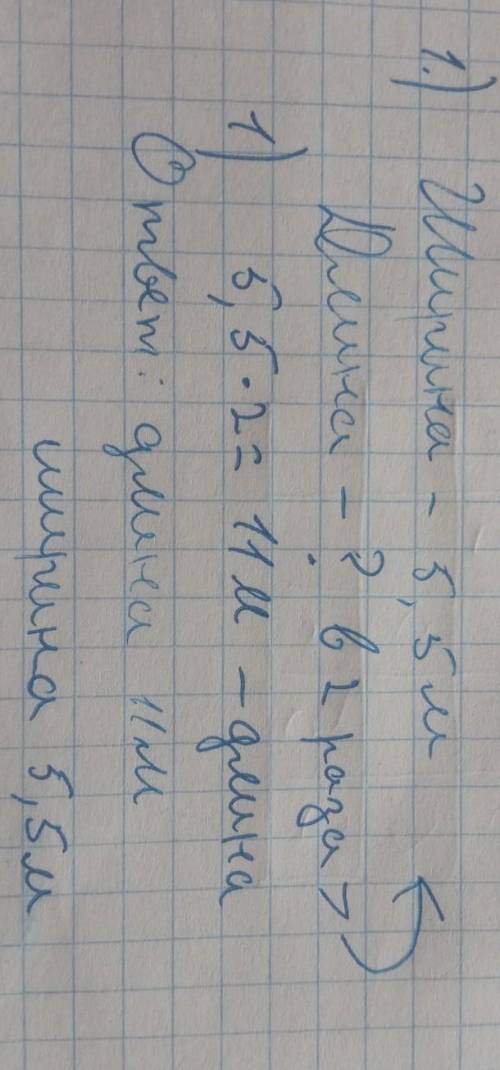 1.) Ширина - 5,5 м
Длина - ? в 2 раза >
1) 5,5 · 2 = 11 м - длина
Ответ: длина 11 м
ширина 5,5 м